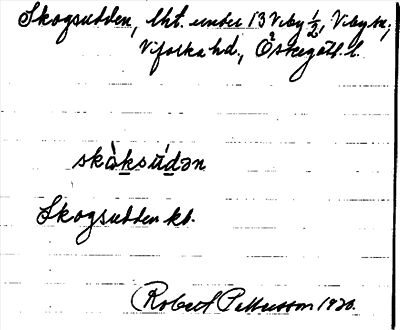 Skogsudden, lht. under 13 Viby 1/2, Viby sn,
Vifolka hd, Östergötl. l.
skȧ̀ksúdən
Skogsudden kb.
Robert Pettersson 1920.